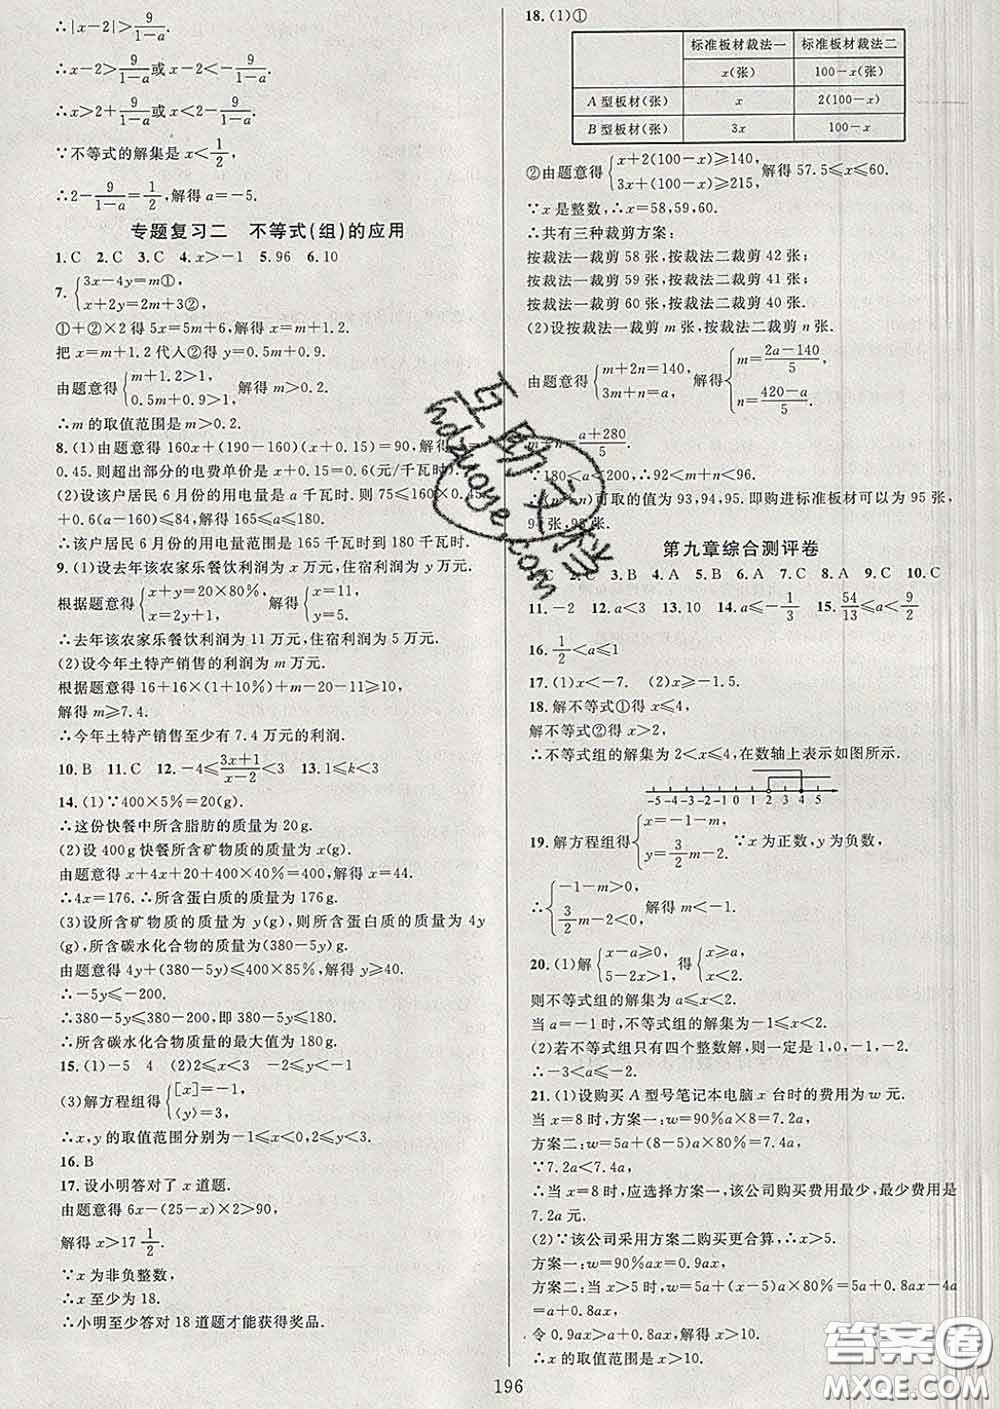 ∴|x−2|>9/(1−a).
∴x−2>9/(1−a)或x−2<−9/(1−a).
∴x>2+9/(1−a)或x<2−9/(1−a).
∵不等式的解集是x<1/2,
∴2−9/(1−a)=1/2,解得a=−5.
专题复习二 不等式(组)的应用
1.C 2.C 3.C 4.x>−1 5.96 6.10
7.{3x−4y=m①,
x+2y=2m+3②,
①+②×2得5x=5m+6,解得x=m+1.2.
把x=m+1.2代人②得y=0.5m+0.9.
由题意得{m+1.2>1, 0.5m+0.9>1. 解得m>0.2.
∴m的取值范围是m>0.2.
8.(1)由题意得160x+(190−160)(x+0.15)=90,解得
0.45.则超出部分的电费单价是x+0.15=0.6(元/千瓦时).
(2)设该户居民6月份的用电量是a千瓦时.则75≤160×0.45
+0.6(a−160)≤84,解得165≤a≤180.
∴该户居民6月份的用电量范围是165千瓦时到180千瓦时.
9.(1)设去年该农家乐餐饮利润为x万元,住宿利润为y万元.
根据题意得{x+y=20×80%, x=2y+1, 解得{x=11, y=5.
∴去年该农家乐餐饮利润为11万元,住宿利润为5万元.
(2)设今年土特产销售的利润为m万元.
根据题意得16+16×(1+10%)+m−20−11≥10,
解得m≥7.4.
∴今年土特产销售至少有7.4万元的利润.
10.B 11.C 12.−4≤(3x+1)/(x−2)<3 13.1≤k<3
14.(1)∵400×5%=20(g).
∴这份快餐中所含脂肪的质量为20g.
(2)设400g快餐所含矿物质的质量为x(g).
由题意得x+4x+20+400×40%=400.解得x=44.
∴4x=176.∴所含蛋白质的质量为176g.
(3)设所含矿物质的质量为y(g),则所含蛋白质的质量为4y
(g),所含碳水化合物的质量为(380−5y)g.
由题意得4y+(380−5y)≤400×85%,解得y≥40.
∴−5y≤−200.
∴380−5y≤380−200,即380−5y≤180.
∴所含碳水化合物质量的最大值为180g.
15.(1)−5 4 (2)2≤x<3 −2≤y<−1
(3)解方程组得{[x]=−1, ⟨y⟩=3.
∴x,y的取值范围分别为−1≤x<0,2≤y<3.
16.B
17.设小明答对了x道题.
由题意得6x−(25−x)×2>90,
解得x>17 1/2.
∵x为非负整数,
∴x至少为18.
∴小明至少答对18道题才能获得奖品.
18.(1)①
标准板材裁法一 标准板材裁法二
x(张) 100−x(张)
A型板材(张) x 2(100−x)
B型板材(张) 3x 100−x
②由题意得{x+2(100−x)≥140, 3x+(100−x)≥215, 解得57.5≤x≤60.
∵x是整数,∴x=58,59,60.
∴共有三种裁剪方案:
按裁法一裁剪58张,按裁法二裁剪42张;
按裁法一裁剪59张,按裁法二裁剪41张;
按裁法一裁剪60张,按裁法二裁剪40张.
(2)设按裁法一裁剪m张,按裁法二裁剪n张.
由题意得{m+2n=140, 3m+n=a, 解得{m=(2a−140)/5, n=(420−a)/5.
m+n=(a+280)/5.
∵180<a<200,∴92<m+n<96.
∴(m+n)可取的值为93,94,95.即购进标准板材可以为95张,
94张,93张.
第九章综合测评卷
2.C 3.B 4.A 5.B 6.A 7.C 8.A 9.C 10.C
11.−2 12.a<3 13.10 14.a≤−1/3 15.54/13≤a<9/2
16.1/2<a≤1
17.(1)x<−7. (2)x≥−1.5.
18.解不等式①得x≤4,
解不等式②得x>2,
∴不等式组的解集为2<x≤4,在数轴上表示如图所示.
−5 −4 −3 −2 −1 0 1 2 3 4 5
19.解方程组得{x=−1−m, y=3/2m−2. ∵x为正数,y为负数,
∴{−1−m>0, 3/2m−2<0, 解得m<−1.
20.(1)解{x−a≥0, 5−2x>1, 得{x≥a, x<2.
则不等式组的解集为a≤x<2.
当a=−1时,不等式组的解集为−1≤x<2.
(2)若不等式组只有四个整数解,则一定是1,0,−1,−2.
∴−3<a≤−2.
21.(1)设购买A型号笔记本电脑x台时的费用为w元.
当x=8时,方案一:w=90%a×8=7.2a.
方案二:w=5a+(8−5)a×80%=7.4a.
∵7.2a<7.4a.
∴当x=8时,应选择方案一,该公司购买费用最少,最少费用是
7.2a元.
(2)∵该公司采用方案二购买更合算,∴x>5.
方案一:w=90%ax=0.9ax.
方案二:当x>5时,w=5a+(x−5)a×80%=5a+0.8ax−4a
=a+0.8ax,
令0.9ax>a+0.8ax,解得x>10.
∴x的取值范围是x>10.
196
互助文档
hdzuoye.com
答案圈
MXQE.COM